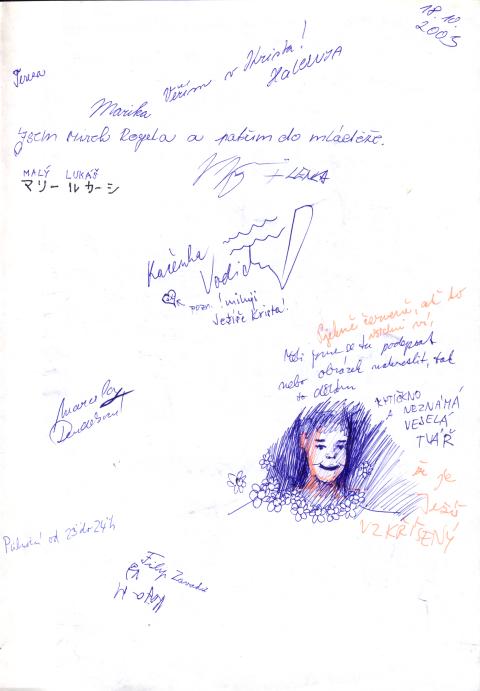 18. 10.
2003
Tereza
Marika
Věřím v Krista!
Haleluja
Jsem Mirek Rogula a patřím do mládeže.
MALÝ LUKÁŠ
マリー ルカーシ
+ LENKA
Kačenka
Vodičk
pozn. ! miluji
Ježíše Krista!
červeně, ať to
všichni ví,
Měli jsme se tu podepsat
nebo obrázek nakreslit, tak
to dělám
KYTIČKNO
A NEZNÁMÁ
VESELÁ
TVÁŘ
že je
Ježíš
VZKŘÍŠENÝ
Marcela
Půlnoční od 23 do 24h
Filip Zavadil